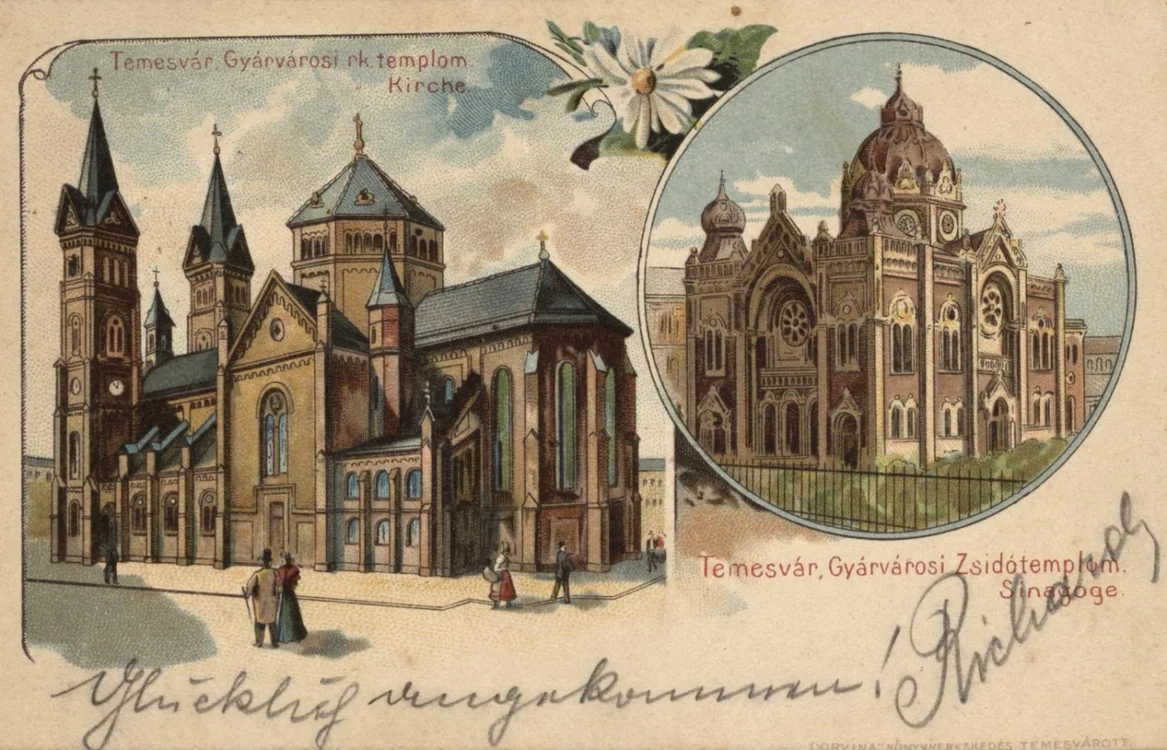 Temesvár, Gyárvárosi rk. templom.
Kirche.
Temesvár, Gyárvárosi Zsidótemplom.
Sinagoge.
Glücklich angekommen!
CORVINA" KÖNYVKERESKEDÉS TEMESVÁROTT.